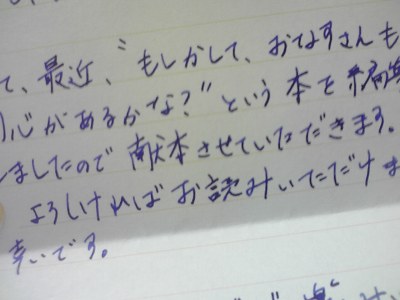 て、最近、"もしかして、おなすさんも
心があるかな?"という本を編集
しましたので献本させていただきます。
よろしければお読みいただけま
幸いです。